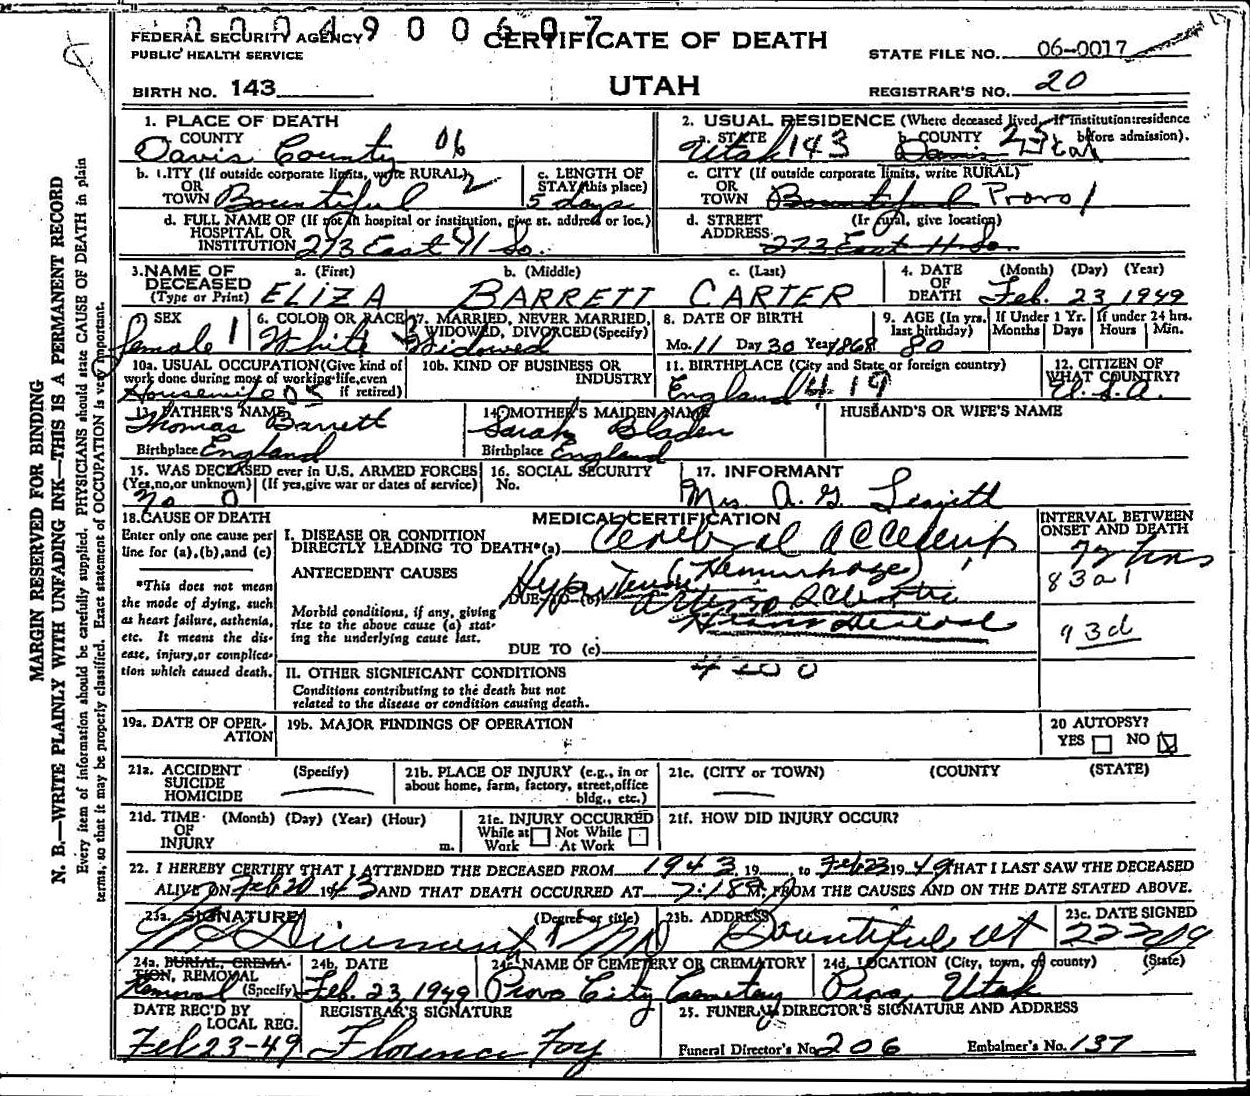 0 0 0 4 9 0 0 6 0 7
FEDERAL SECURITY AGENCY
PUBLIC HEALTH SERVICE
CERTIFICATE OF DEATH
STATE FILE NO. 06-0017
BIRTH NO. 143
UTAH
REGISTRAR'S NO. 20
1. PLACE OF DEATH
a. COUNTY
Davis County 06
2. USUAL RESIDENCE (Where deceased lived. If institution: residence before admission).
a. STATE Utah 143 b. COUNTY Davis 25 Utah
b. CITY (If outside corporate limits, write RURAL) 2
OR
TOWN Bountiful
c. LENGTH OF
STAY (in this place)
5 days
c. CITY (If outside corporate limits, write RURAL)
OR
TOWN Bountiful Provo 1
d. FULL NAME OF (If not in hospital or institution, give st. address or loc.)
HOSPITAL OR
INSTITUTION 273 East 4 So.
d. STREET (If rural, give location)
ADDRESS 273 East 4 So.
3. NAME OF
DECEASED
(Type or Print)
a. (First) b. (Middle) c. (Last)
ELIZA BARRETT CARTER
4. DATE (Month) (Day) (Year)
OF
DEATH Feb. 23, 1949
5. SEX
female 1
6. COLOR OR RACE
White
7. MARRIED, NEVER MARRIED,
WIDOWED, DIVORCED (Specify)
Widowed
8. DATE OF BIRTH
Mo. 11 Day 30 Year 1868
9. AGE (In yrs. last birthday)
80
If Under 1 Yr.
Months Days
If under 24 hrs.
Hours Min.
10a. USUAL OCCUPATION (Give kind of
work done during most of working life, even
if retired)
Housewife 05
10b. KIND OF BUSINESS OR
INDUSTRY
11. BIRTHPLACE (City and State or foreign country)
England 4 19
12. CITIZEN OF
WHAT COUNTRY?
U.S.A.
13. FATHER'S NAME
Thomas Barrett
Birthplace England
14. MOTHER'S MAIDEN NAME
Sarah Bladen
Birthplace England
HUSBAND'S OR WIFE'S NAME
15. WAS DECEASED ever in U.S. ARMED FORCES
(Yes, no, or unknown) (If yes, give war or dates of service)
no 0
16. SOCIAL SECURITY
No.
17. INFORMANT
Mrs. A. G.
18. CAUSE OF DEATH
Enter only one cause per
line for (a), (b), and (c)
*This does not mean
the mode of dying, such
as heart failure, asthenia,
etc. It means the dis-
ease, injury, or complica-
tion which caused death.
MEDICAL CERTIFICATION
I. DISEASE OR CONDITION
DIRECTLY LEADING TO DEATH*(a) Cerebral Accident
(Hemorrhage)
ANTECEDENT CAUSES
Morbid conditions, if any, giving
rise to the above cause (a) stat-
ing the underlying cause last.
DUE TO (b) Hypertensive Arterio Sclerotic
Heart Disease
DUE TO (c)
INTERVAL BETWEEN
ONSET AND DEATH
72 hrs
83a1
93d
II. OTHER SIGNIFICANT CONDITIONS 4200
Conditions contributing to the death but not
related to the disease or condition causing death.
19a. DATE OF OPER-
ATION
19b. MAJOR FINDINGS OF OPERATION
20 AUTOPSY?
YES NO
21a. ACCIDENT (Specify)
SUICIDE
HOMICIDE
21b. PLACE OF INJURY (e.g., in or
about home, farm, factory, street, office
bldg., etc.)
21c. (CITY or TOWN) (COUNTY) (STATE)
21d. TIME (Month) (Day) (Year) (Hour)
OF
INJURY m.
21e. INJURY OCCURRED
While at Work Not While At Work
21f. HOW DID INJURY OCCUR?
22. I HEREBY CERTIFY THAT I ATTENDED THE DECEASED FROM 1943, 19 to Feb 23 1949 THAT I LAST SAW THE DECEASED
ALIVE ON Feb 20 1943 AND THAT DEATH OCCURRED AT 7:18 P M, FROM THE CAUSES AND ON THE DATE STATED ABOVE.
23a. SIGNATURE (Degree or title)
MD
23b. ADDRESS
Bountiful Ut
23c. DATE SIGNED
24a. BURIAL, CREMA-
TION, REMOVAL
Removal (Specify)
24b. DATE
Feb. 23, 1949
24c. NAME OF CEMETERY OR CREMATORY
Provo City Cemetery
24d. LOCATION (City, town, or county) (State)
Provo, Utah
DATE REC'D BY
LOCAL REG.
Feb 23-49
REGISTRAR'S SIGNATURE
Florence Foy
25. FUNERAL DIRECTOR'S SIGNATURE AND ADDRESS
Funeral Director's No. 206 Embalmer's No. 137
MARGIN RESERVED FOR BINDING
N. B.—WRITE PLAINLY WITH UNFADING INK—THIS IS A PERMANENT RECORD
Every item of information should be carefully supplied. PHYSICIANS should state CAUSE OF DEATH in plain
terms, so that it may be properly classified. Exact statement of OCCUPATION is very important.